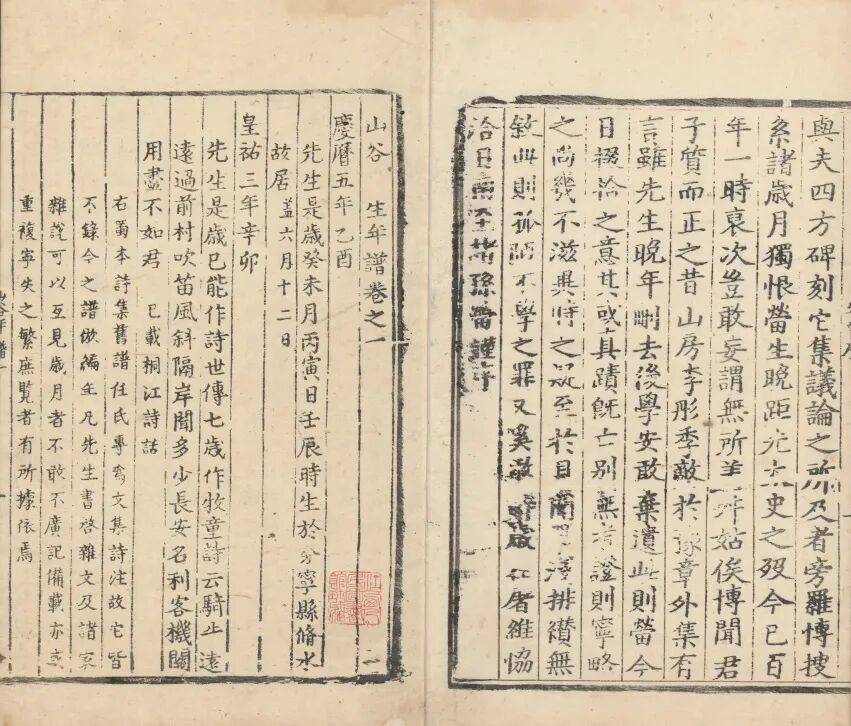 與夫四方碑刻它集議論之所及者旁羅愽搜
系諸歲月獨恨㽦生晚距太史之歿今已百
年一時裒次豈敢妄謂無所姑俟博聞君
子質而正之昔山房李彤季敵於豫章外集有
言雖先生晚年刪去後學安敢棄遺此則㽦今
日掇拾之意其或真蹟旣亡別無考證則寧略
之尚幾不滋異時之疑至於淺排無
敘此則孤陋不學之罪又奚敢辭歲在屠維協
洽日南至諸孫㽦謹序
山谷先生年譜卷之一
慶曆五年乙酉
先生是歲癸未月丙寅日壬辰時生於分寧縣脩水
故居蓋六月十二日
皇祐三年辛卯
先生是歲已能作詩世傳七歲作牧童詩云騎牛遠
遠過前村吹笛風斜隔岸聞多少長安名利客機關
用盡不如君 已載桐江詩話
右蜀本詩集舊譜任氏專爲文集詩注故它皆
不錄今之譜倣編年凡先生書啓雜文及諸家
雜說可以互見歲月者不敢不廣記備載亦或
重複寧失之繁庶覽者有所據依焉